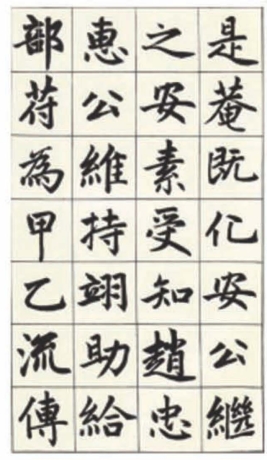 是菴既化安公繼
之安素受知趙忠
惠公維持翊助給
部苻為甲乙流傳